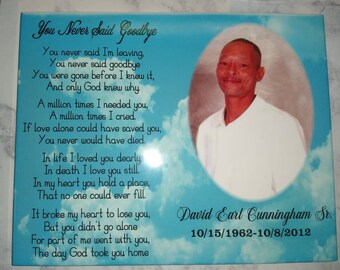 You Never Said Goodbye
You never said I'm leaving,
You never said goodbye
You were gone before I knew it,
And only God knew why.
A million times I needed you,
A million times I cried.
If love alone could have saved you,
You never would have died.
In life I loved you dearly
In death I love you still.
In my heart you hold a place,
That no one could ever fill.
It broke my heart to lose you,
But you didn't go alone
For part of me went with you,
The day God took you home
David Earl Cunningham Sr.
10/15/1962-10/8/2012